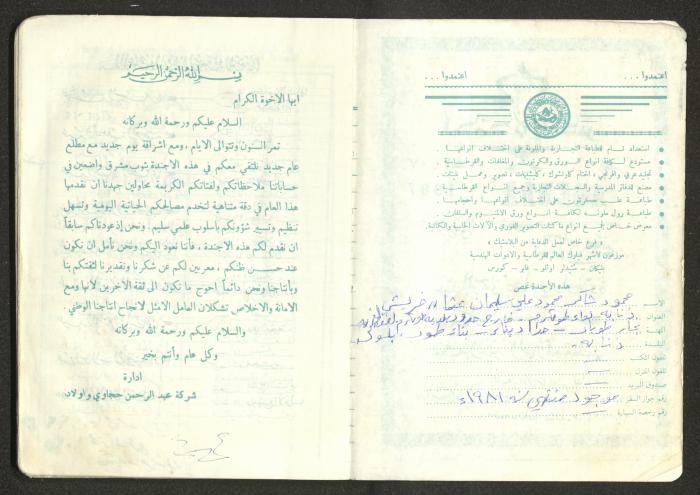 بسم الله الرحمن الرحيم
ايها الاخوة الكرام
السلام عليكم ورحمة الله وبركاته
تمر السنون وتتوالى الايام ، ومع اشراقة يوم جديد مع مطلع
عام جديد نلتقي معكم في هذه الاجندة بثوب مشرق واضعين في
حساباتنا ملاحظاتكم ولفتاتكم الكريمة محاولين جهدنا ان نقدمها
هذا العام في دقة متناهية لتخدم مصالحكم الحياتية اليومية وتسهل
تنظيم وتسيير شؤونكم بأسلوب علمي سليم . ونحن إذ عودناكم سابقاً
ان نقدم لكم هذه الاجندة ، فأننا نعود اليكم ونحن نأمل ان نكون
عند حسن ظنكم ، معربين لكم عن شكرنا وتقديرنا لثقتكم بنا
وبأنتاجنا ونحن دائماً احوج ما نكون الى ثقة الآخرين لانها ومع
الامانة والاخلاص تشكلان العامل الامثل لانجاح انتاجنا الوطني .
والسلام عليكم ورحمة الله وبركاته
وكل عام وأنتم بخير
ادارة
شركة عبد الرحمن حجاوي واولاده
اعتمدوا . . . اعتمدوا . . .
استعداد تام للطباعة التجارية والملونة على اختلاف انواعها .
مستودع لكافة انواع الورق والكرتون والمغلفات والقرطاسية .
تجليد عربي وافرنجي ، اختام كاوتشوك ، كليشيهات ، تصوير وعمل بليتات .
مصنع للدفاتر المدرسية والسجلات التجارية وجميع انواع القرطاسية .
طباعة علب كرتون على اختلاف انواعها واحجامها .
طباعة رول ملونه لكافة انواع ورق الالمنيوم والسلفان .
معرض خاص بجميع انواع ماكنات التصوير الفوري والآلات الحاسبة والكاتبة .
( فرع خاص لعمل الدعاية من البلاستيك )
موزعون لأشهر مـاركات العالم للقرطاسية والادوات الهندسية
بليكان - شتيدلر روترنغ - فابر - كورس
هذه الاجندة تخص
الاسم محمود شاكر محمود علي سليمان عثمان
العنوان ذنابة لواء طولكرم - خارج حدود
المهنة
البلدة ذنابه
تلفون المكتب
تلفون المنزل
صندوق البريد
رقم جواز السفر موجود منتهي سنة ١٩٨١ء
رقم رخصة السيارة